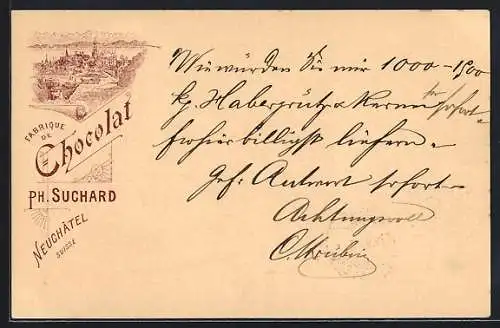 FABRIQUE
DE
Chocolat
PH. SUCHARD
NEUCHÂTEL
SUISSE
Wie würden Sie mir 1000–1500
kg Habergrütz Kerne für sofort
franko hier billigst liefern.
Gef. Antwort sofort
Achtungsvoll